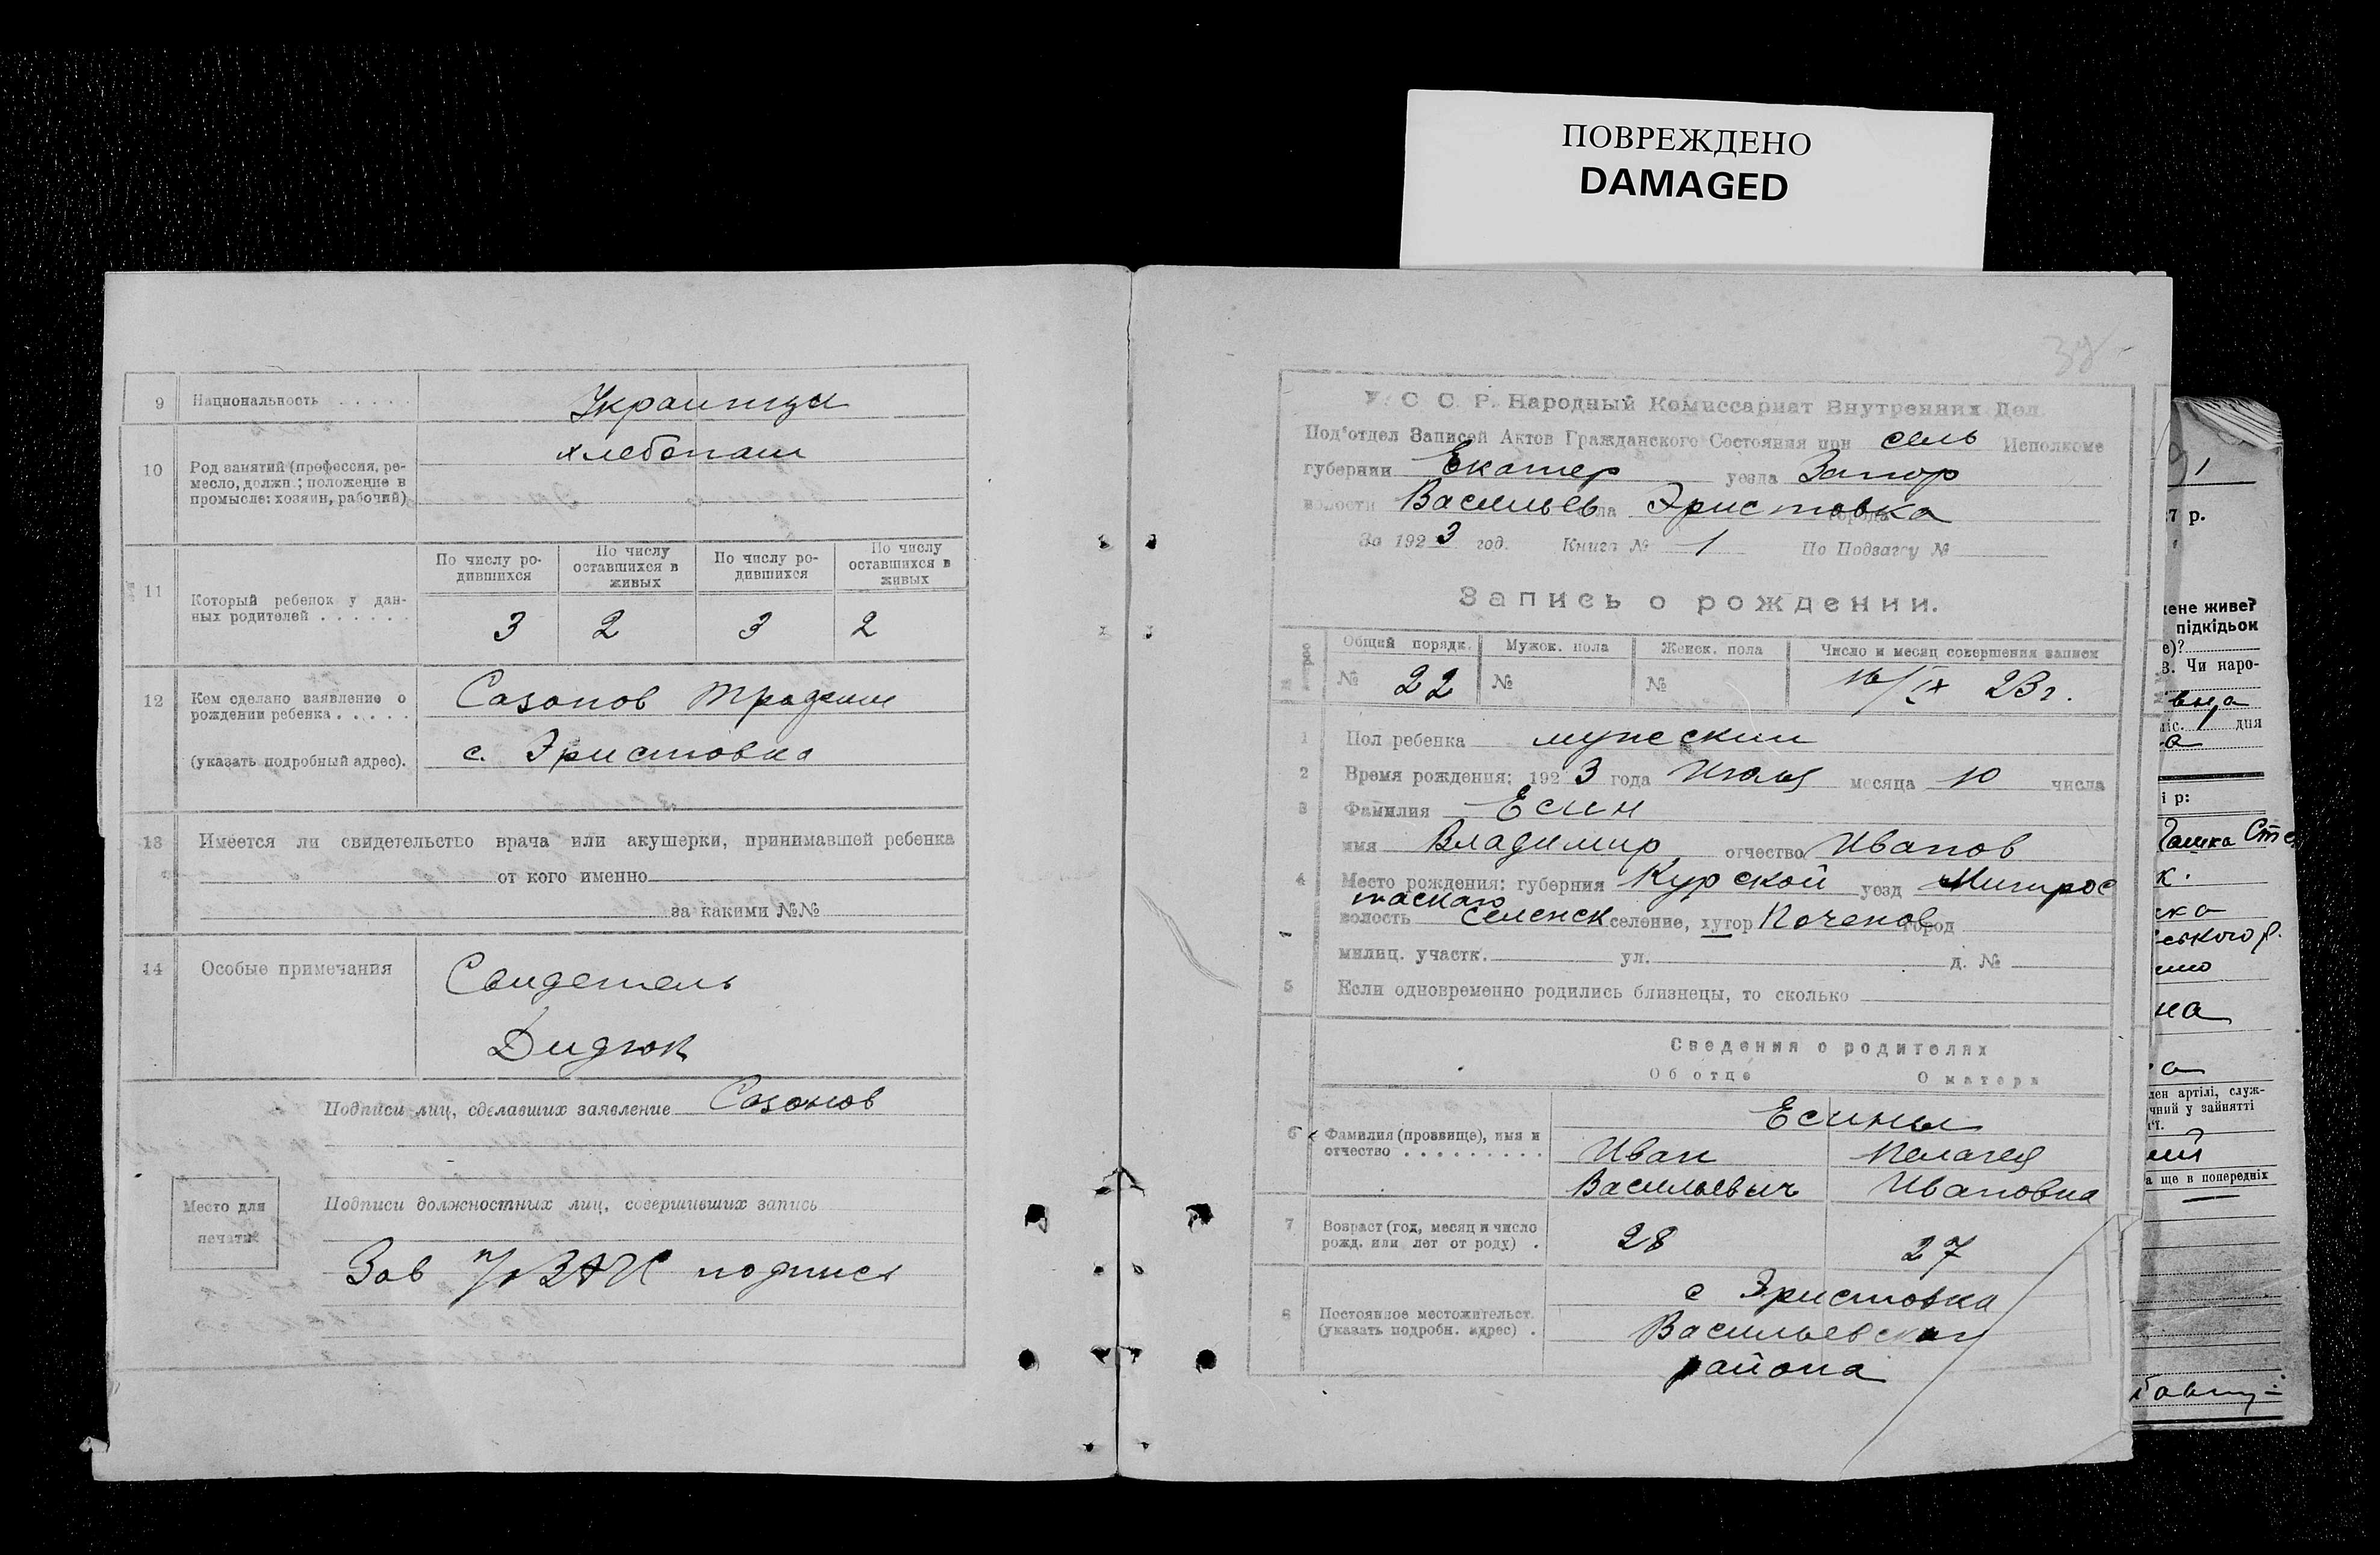 ПОВРЕЖДЕНО
DAMAGED
9 Национальность . . . . . Украинцы
10 Род занятий (профессия, ре-
месло, должн.; положение в
промысле: хозяин, рабочий)
хлебопаш
11 Который ребенок у дан-
ных родителей . . . . . .
По числу ро-
дившихся
По число
оставшихся в
живых
По числу ро-
дившихся
По числу
оставшихся в
живых
3 2 3 2
12 Кем сделано заявление о
рождении ребенка . . . . .
(указать подробный адрес).
Сазонов
с. Эристовка
13 Имеется ли свидетельство врача или акушерки, принимавшей ребенка
от кого именно
за какими №№
14 Особые примечания
Свидетель
Дидюк
Подписи лиц, сделавших заявление Сазонов
Место для
печати
Подписи должностных лиц, совершивших запись
Зав п/о ЗАГС подписи
39
У. С. С. Р. Народный Комиссариат Внутренних Дел.
Под'отдел Записей Актов Гражданского Состояния при сель Исполкоме
губернии Екатер уезда Запор
волости Васильев села Эристовка города
За 1923 год. Книга № 1 По Подзагсу №
Запись о рождении.
Общий порядк. Мужск. пола Женск. пола Число и месяц совершения записи
№ 22 № № 16/IX 23 г.
1 Пол ребенка мужеский
2 Время рождения: 1923 года Июля месяца 10 числа
3 Фамилия Есин
имя Владимир отчество Иванов
4 Место рождения: губерния Курской уезд
волость селение, хутор город
милиц. участк. ул. д. №
5 Если одновременно родились близнецы, то сколько
Сведения о родителях
Об отце О матери
6 Фамилия (прозвище), имя и
отчество . . . . . . . . .
Есины
Иван Пелагея
Васильевич Ивановна
7 Возраст (год, месяц и число
рожд. или лет от роду) .
28 27
8 Постоянное местожительст.
(указать подробн. адрес) .
с Эристовка
Васильевского
района
7 р.
жене живе?
підкідьок
е)?
3. Чи наро-
дня
і р:
ська
ського р.
на
член артілі, служ-
чний у зайнятті
а ще в попередніх